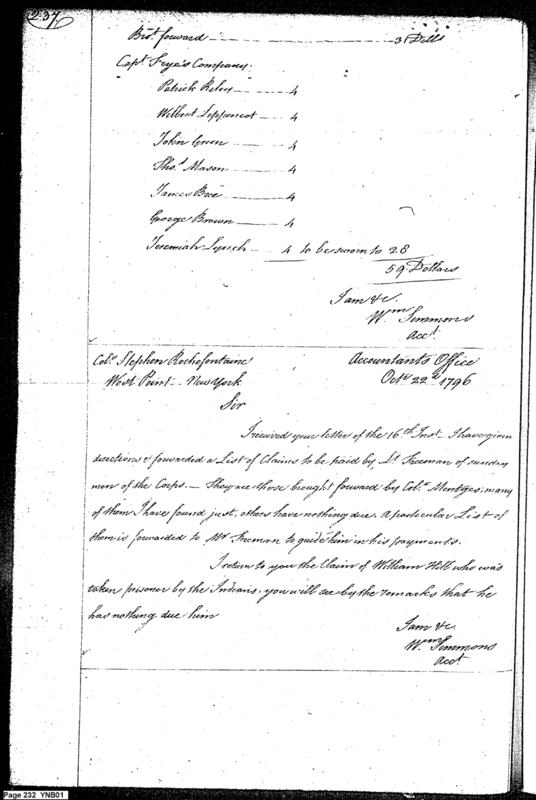 237
Brot. forward 31 Dolls
Capt. Frye's Company.
Patrick Reley 4
Wilbert Leppencot 4
John Green 4
Thos. Mason 4
James Bree 4
George Brown 4
Jeremiah Lynch 4 to be sworn to 28
59 Dollars
I am &c.
Wm Simmons
Acct.
Colo. Stephen Rochefontaine Accountants Office
West Point - New York Octr. 22d. 1796
Sir
I received your letter of the 16th. Inst. I have given
directions & forwarded a List of Claims to be paid by Lt. Freeman of sundry
men of the Corps. - They are those brought forward by Colo. Mentges; many
of them I have found just, others have nothing due. A particular List of
them is forwarded to Mr Freeman to guide him in his payments.
I return to you the Claim of William Hill who was
taken prisoner by the Indians, you will see by the remarks that he
has nothing due him
I am &c.
Wm Simmons
Acct
Page 232 YNB01